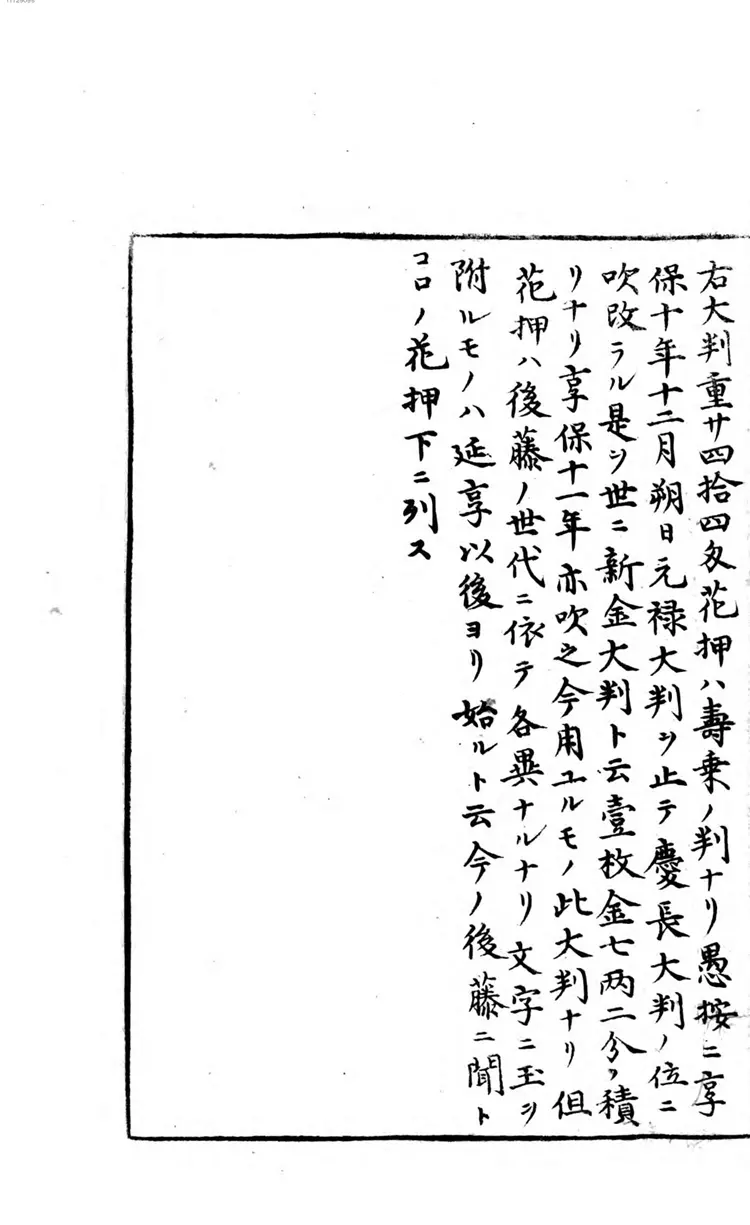 右大判重サ四拾四匁花押ハ壽乗ノ判ナリ愚按ニ享
保十年十二月朔日元禄大判ヲ止テ慶長大判ノ位ニ
吹改ラル是ヲ世ニ新金大判ト云壹枚金七两二分ノ積
リナリ享保十一年亦吹之今用ユルモノ此大判ナリ但
花押ハ後藤ノ世代ニ依テ各異ナルナリ文字ニ玉ヲ
附ルモノハ延享以後ヨリ始ルト云今ノ後藤ニ聞ト
コロノ花押下ニ列ス